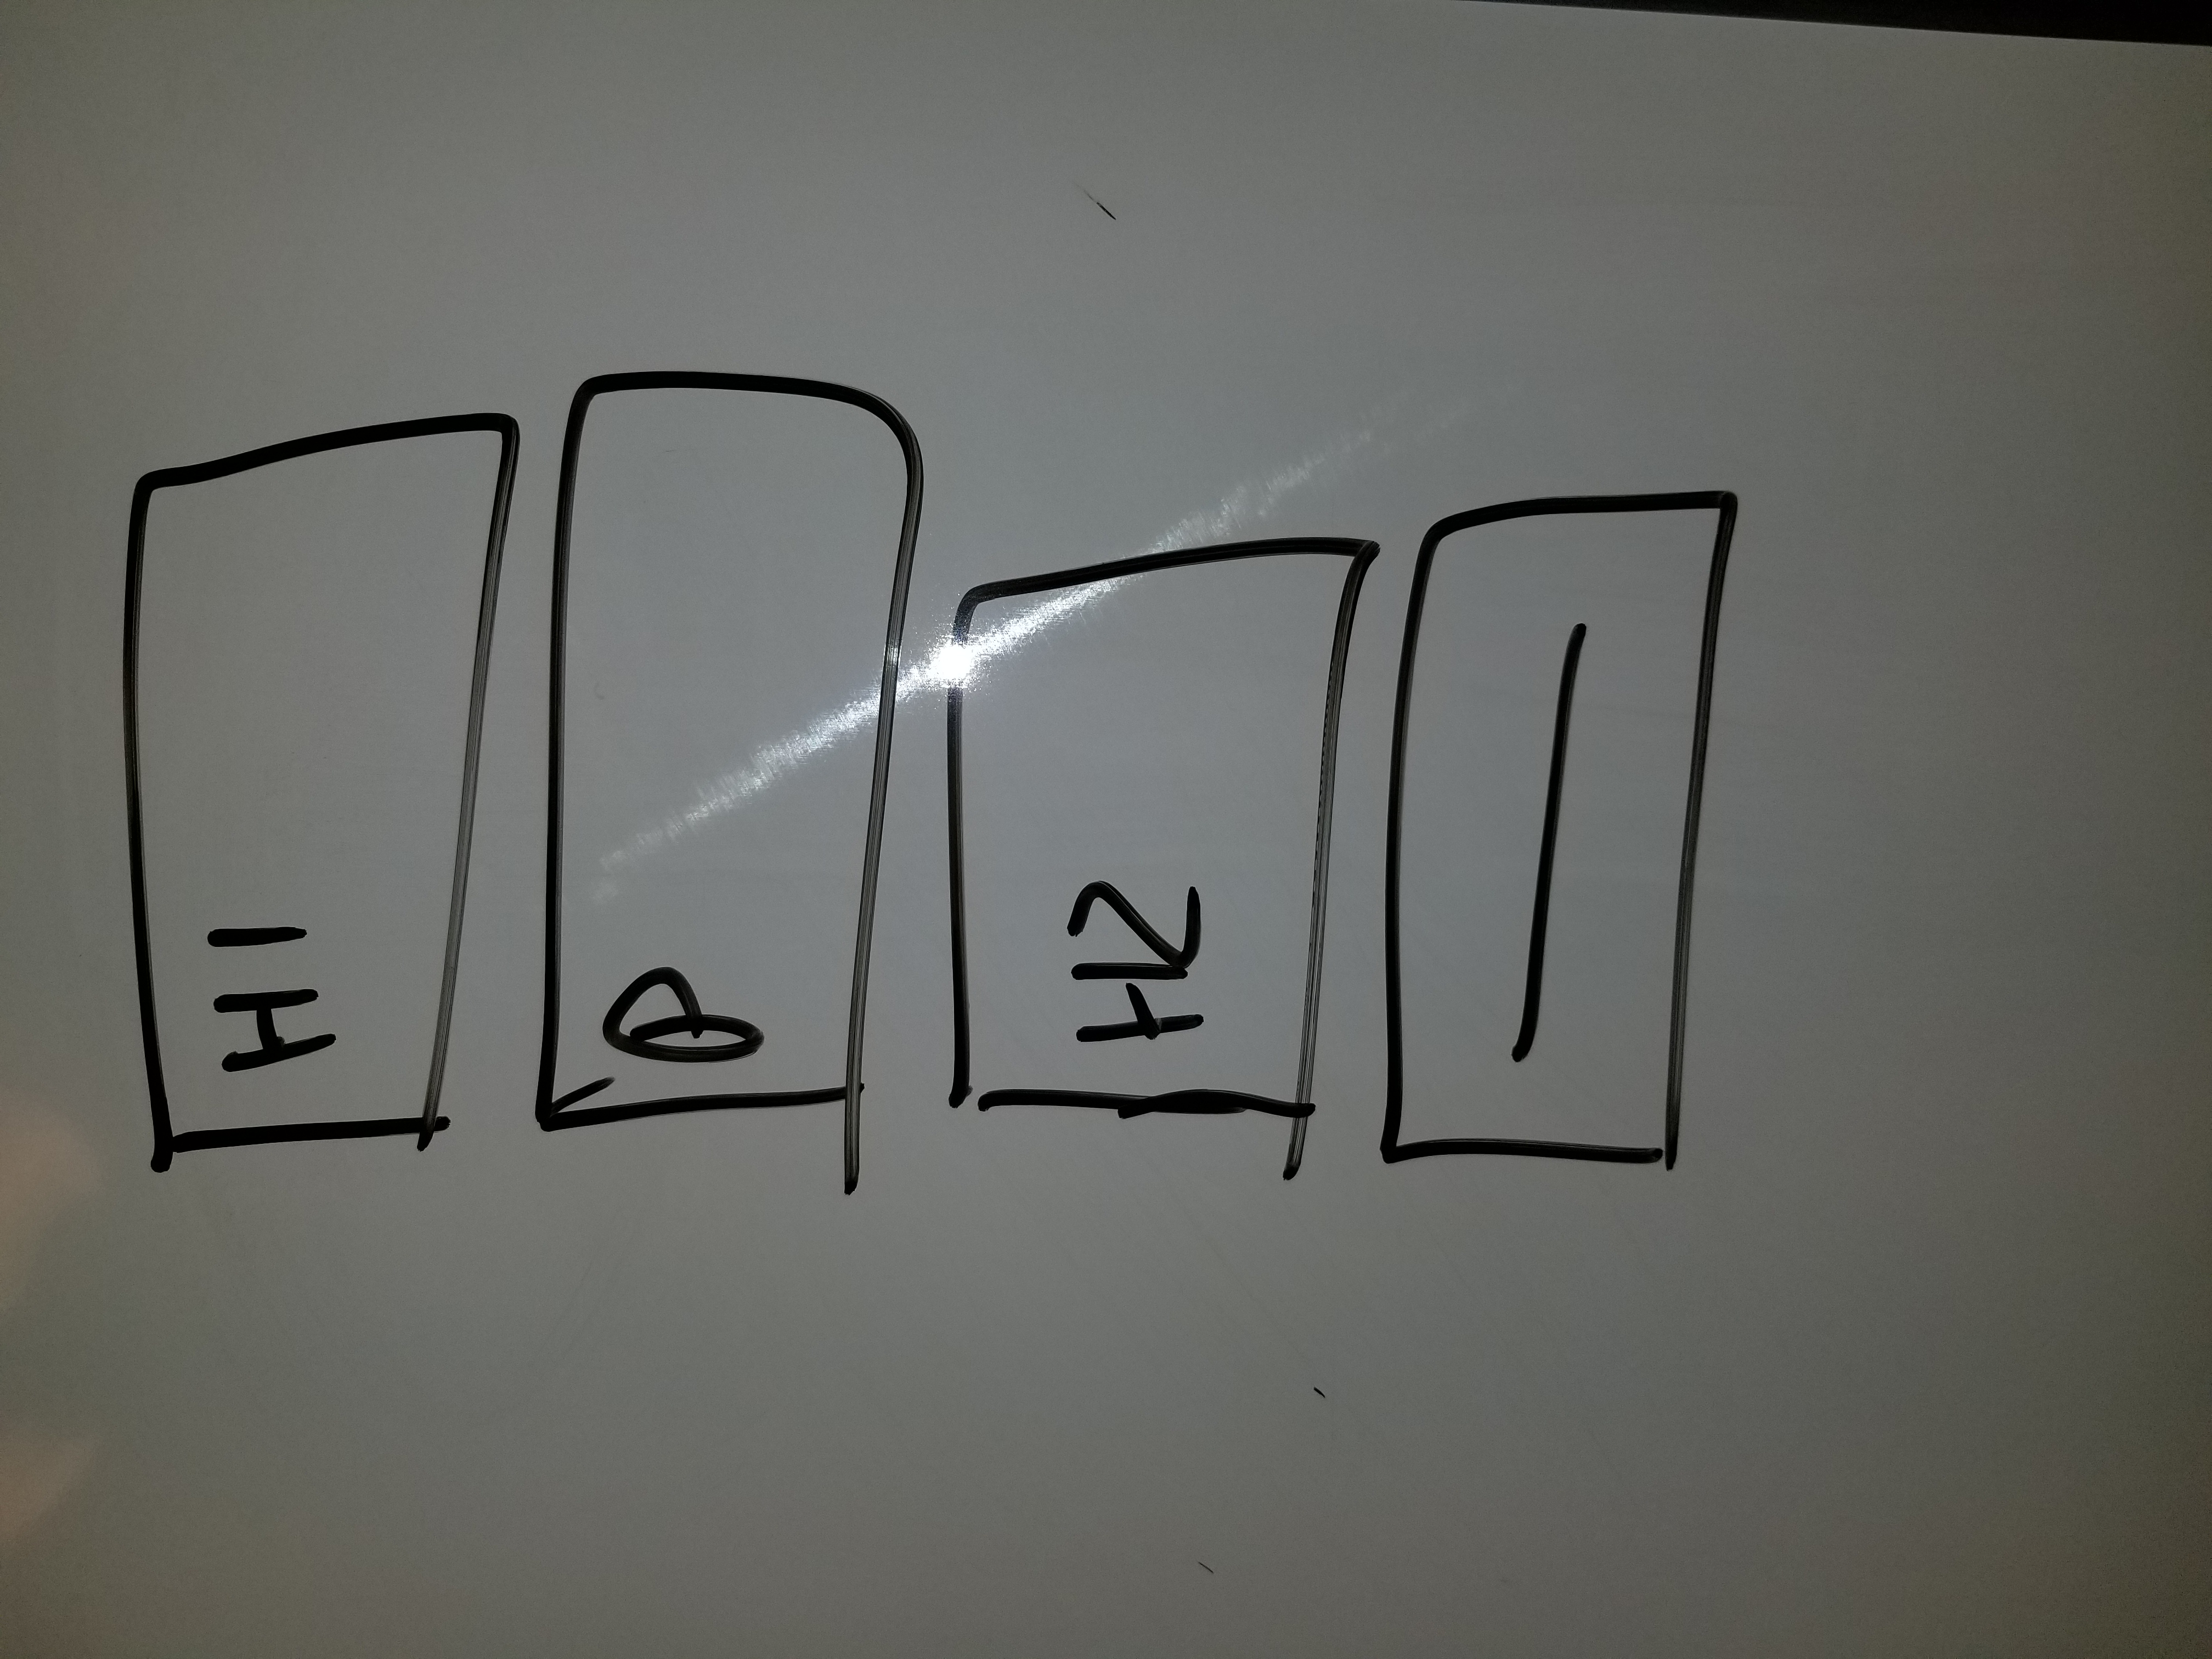 H1
P
H2